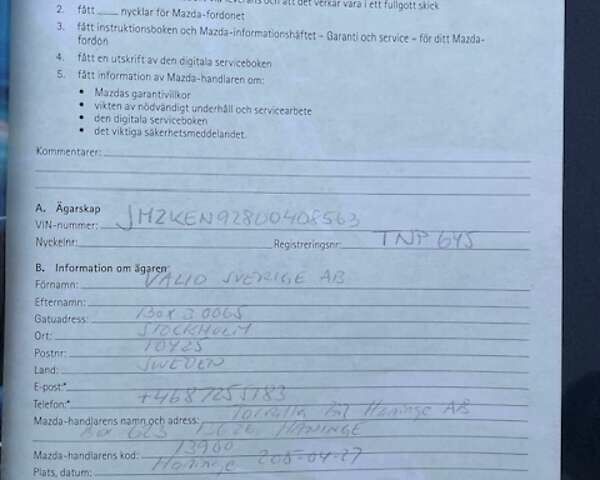 det verkar vara i ett fullgott skick
2. fått ____ nycklar för Mazda-fordonet
3. fått instruktionsboken och Mazda-informationshäftet – Garanti och service – för ditt Mazda-
fordon
4. fått en utskrift av den digitala serviceboken
5. fått information av Mazda-handlaren om:
• Mazdas garantivillkor
• vikten av nödvändigt underhåll och servicearbete
• den digitala serviceboken
• det viktiga säkerhetsmeddelandet.
Kommentarer:
A. Ägarskap
VIN-nummer: JMZKEN92800408563
Nyckelnr: Registreringsnr: TNP 645
B. Information om ägaren
Förnamn: VALIO SVERIGE AB
Efternamn:
Gatuadress: Box 30065
Ort: STOCKHOLM
Postnr: 10425
Land: SWEDEN
E-post:*
Telefon:* +4687255183
Mazda-handlarens namn och adress: Bil Haninge AB
Box 623 HANINGE
Mazda-handlarens kod: 13900
Plats, datum: Haninge